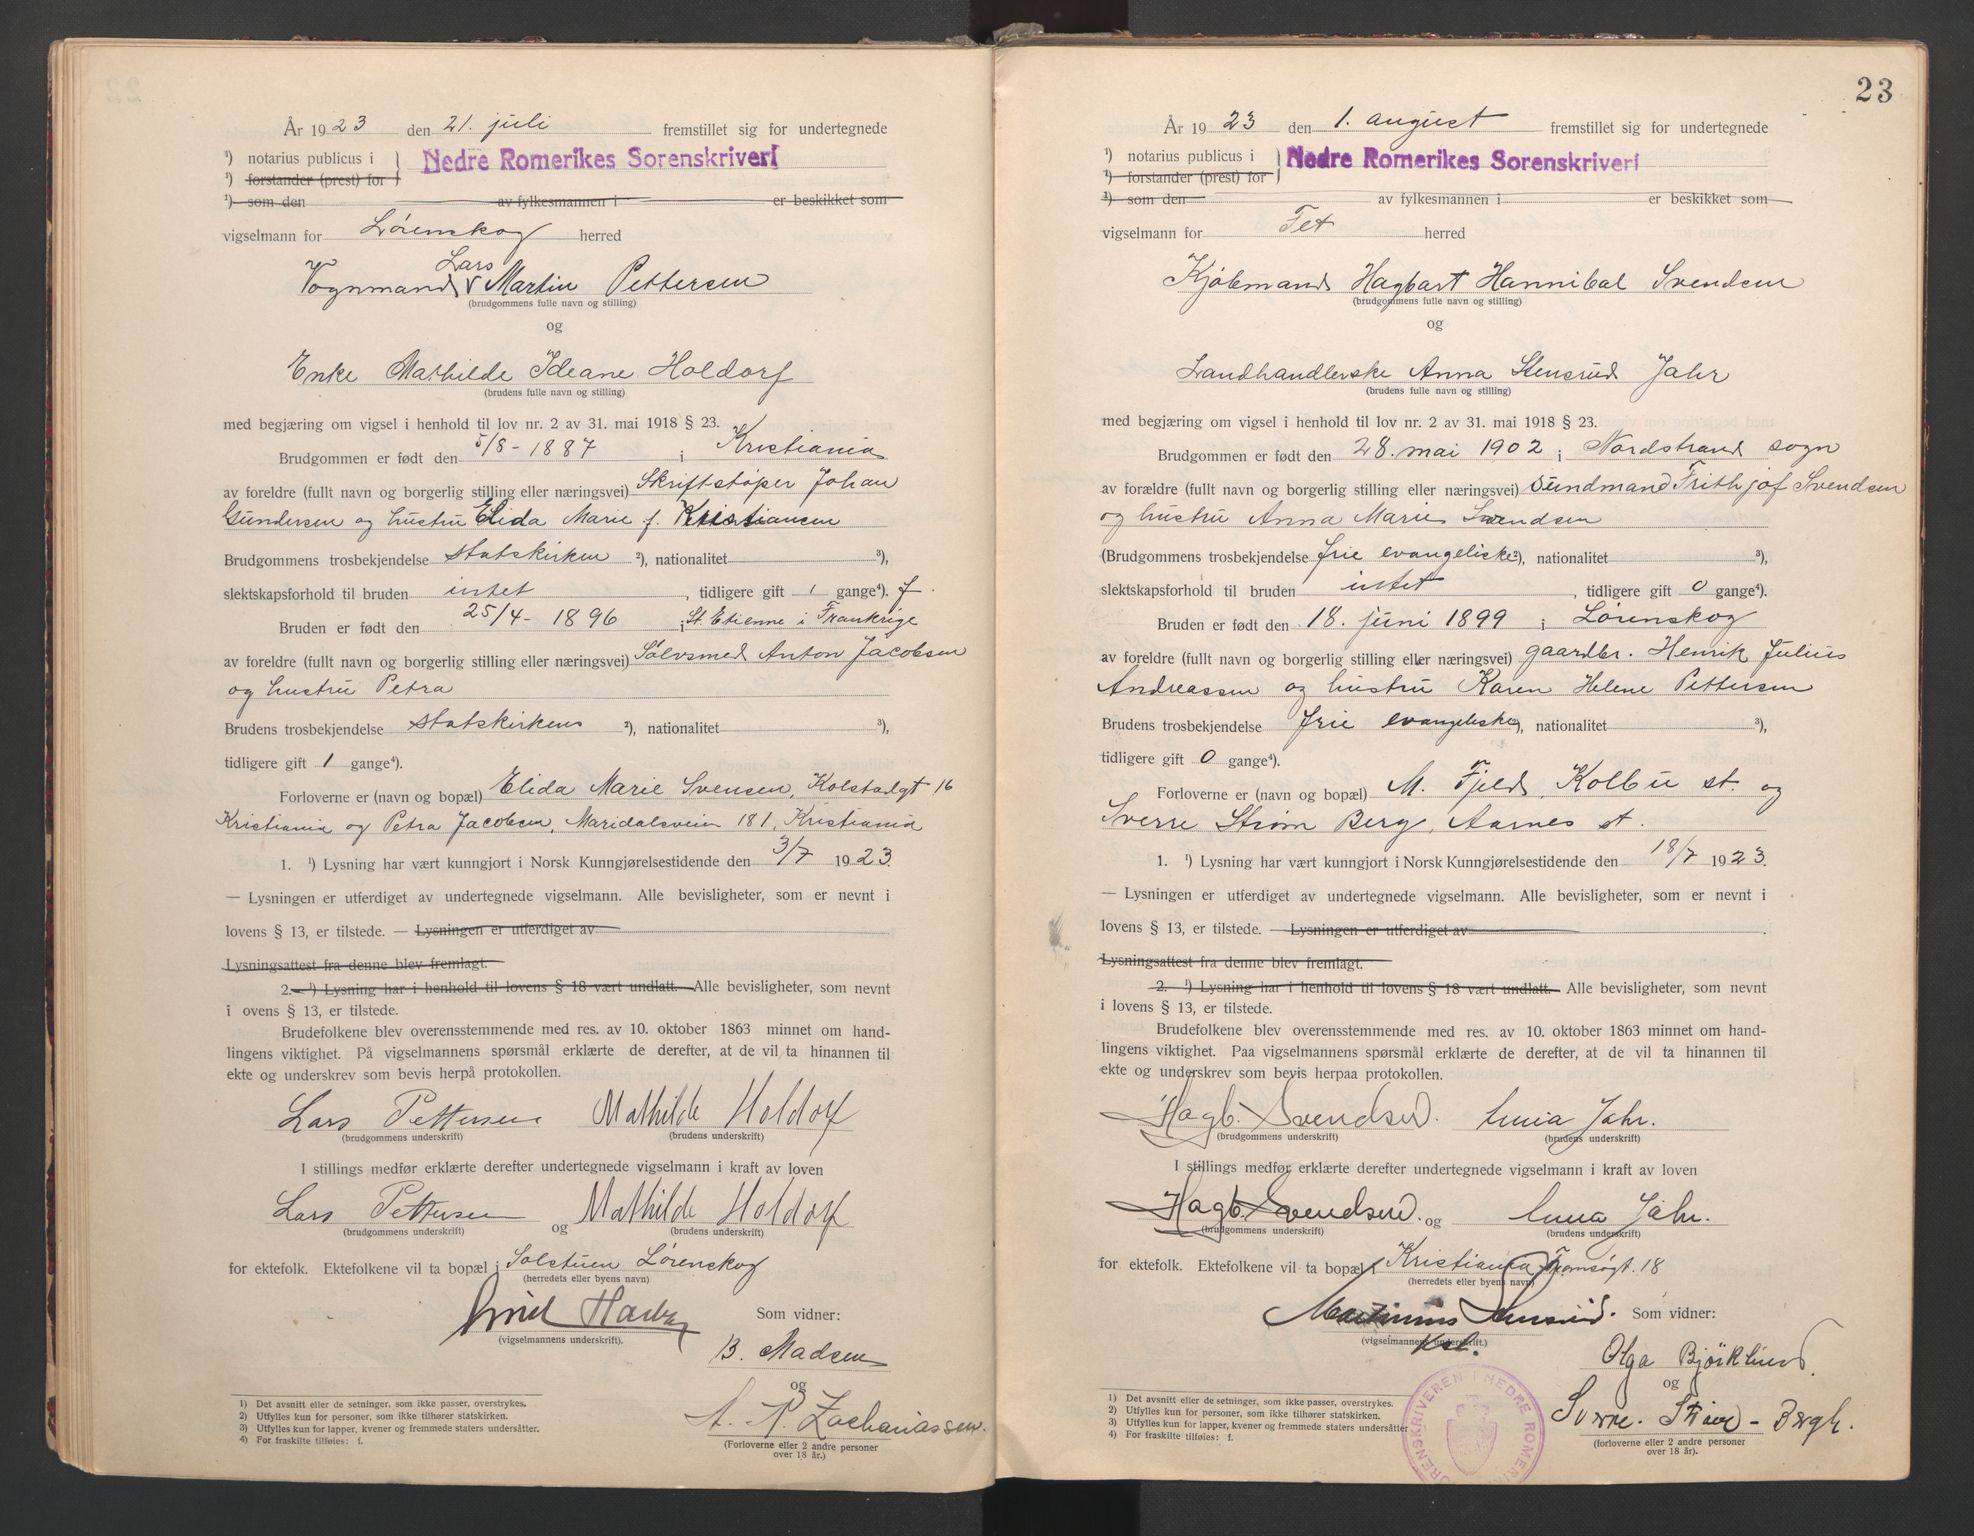 År 1923 den 21. juli fremstillet sig for undertegnede
¹) notarius publicus i Nedre Romerikes Sorenskriveri
¹) forstander (prest) for
¹) som den av fylkesmannen i er beskikket som
vigselmann for Lørenskog herred
Lars
Vognmand v Martin Pettersen
(brudgommens fulle navn og stilling)
og
Enke Mathilde Ideane Holdorf
(brudens fulle navn og stilling)
med begjæring om vigsel i henhold til lov nr. 2 av 31. mai 1918 § 23.
Brudgommen er født den 5/8 - 1887 i Kristiania
av foreldre (fullt navn og borgerlig stilling eller næringsvei) Skriftstøper Johan
Gundersen og hustru Elida Marie f. Kristiansen
Brudgommens trosbekjendelse statskirken ²), nationalitet ³),
slektskapsforhold til bruden intet, tidligere gift 1 gange⁴). f.
Bruden er født den 25/4 - 1896 i St. Etienne i Frankrige
av foreldre (fullt navn og borgerlig stilling eller næringsvei) Sølvsmed Anton Jacobsen
og hustru Petra
Brudens trosbekjendelse statskirkens ²), nationalitet ³),
tidligere gift 1 gange⁴).
Forloverne er (navn og bopæl) Elida Marie Svensen, Kolstadgt 16
Kristiania og Petra Jacobsen, Maridalsveien 181, Kristiania
1. ¹) Lysning har vært kunngjort i Norsk Kunngjørelsestidende den 3/7 1923.
— Lysningen er utferdiget av undertegnede vigselmann. Alle bevisligheter, som er nevnt i
lovens § 13, er tilstede. — Lysningen er utferdiget av
Lysningsattest fra denne blev fremlagt.
2. — ¹) Lysning har i henhold til lovens § 18 vært undlatt. — Alle bevisligheter, som nevnt
i ovens § 13, er tilstede.
Brudefolkene blev overensstemmende med res. av 10. oktober 1863 minnet om hand-
lingens viktighet. På vigselmannens spørsmål erklærte de derefter, at de vil ta hinannen til
ekte og underskrev som bevis herpå protokollen.
Lars Pettersen Mathilde Holdorf
(brudgommens underskrift) (brudens underskrift)
I stillings medfør erklærte derefter undertegnede vigselmann i kraft av loven
Lars Pettersen og Mathilde Holdorf
(brudgommens underskrift) (brudens underskrift)
for ektefolk. Ektefolkene vil ta bopæl i Solstuen Lørenskog
(herredets eller byens navn)
Som vidner:
(vigselmannens underskrift).
B. Madsen
og
A. P. Zachariassen.
(Forloverne eller 2 andre personer
over 18 år.)
1) Det avsnitt eller de setninger, som ikke passer, overstrykes.
2) Utfylles kun for personer, som ikke tilhører statskirken.
3) Utfylles kun for lapper, kvener og fremmede staters undersåtter.
4) For fraskilte tilføies: f.
23
År 1923 den 1. august fremstillet sig for undertegnede
¹) notarius publicus i Nedre Romerikes Sorenskriveri
¹) forstander (prest) for
¹) som den av fylkesmannen i er beskikket som
vigselmann for Fet herred
Kjøbmand Hagbart Hannibal Svendsen
(brudgommens fulle navn og stilling)
og
Landhandlerske Anna Stensrud Jahr
(brudens fulle navn og stilling)
med begjæring om vigsel i henhold til lov nr. 2 av 31. mai 1918 § 23.
Brudgommen er født den 28. mai 1902 i Nordstrand sogn
av forældre (fullt navn og borgerlig stilling eller næringsvei) Sundmand Frithjof Svendsen
og hustru Anna Marie Svendsen
(Brudgommens trosbekjendelse frie evangeliske ²), nationalitet ³),
slektskapsforhold til bruden intet, tidligere gift 0 gange⁴).
Bruden er født den 18. juni 1899 i Lørenskog
av foreldre (fullt navn og borgerlig stilling eller næringsvei) gaardbr. Henrik Julius
Andreassen og hustru Karen Helene Pettersen
Brudens trosbekjendelse frie evangeliske ²), nationalitet ³),
tidligere gift 0 gange⁴).
Forloverne er (navn og bopæl) M. Fjeld, Kolbu st. og
Sverre Strøm Berg, Aarnes st.
1. ¹) Lysning har vært kunngjort i Norsk Kunngjørelsestidende den 18/7 1923.
— Lysningen er utferdiget av undertegnede vigselmann. Alle bevisligheter, som er nevnt i
lovens § 13, er tilstede. — Lysningen er utferdiget av
Lysningsattest fra denne blev fremlagt.
2. ¹) Lysning har i henhold til lovens § 18 vært undlatt. Alle bevisligheter, som nevnt
i lovens § 13, er tilstede.
Brudefolkene blev overensstemmende med res. av 10. oktober 1863 minnet om hand-
lingens viktighet. Paa vigselmannens spørsmål erklærte de derefter, at de vil ta hinannen til
ekte og underskrev som bevis herpaa protokollen.
Hagb. Svendsen. Anna Jahr.
(brudgommens underskrift) (brudens underskrift)
I stillings medfør erklærte derefter undertegnede vigselmann i kraft av loven
Hagb. Svendsen. og Anna Jahr.
(brudgommens underskrift) (brudens underskrift)
for ektefolk. Ektefolkene vil ta bopæl i Kristiania Tromsøgt. 18
(herredets eller byens navn)
Martinius Som vidner:
(vigselmannens underskrift.)
Kst.
Olga Bjørklund
og
Sverre Strøm - Bergh.
(forloverne eller 2 andre personer
over 18 år).
1) Det avsnitt eller de setninger, som ikke passer, overstrykes.
2) Utfylles kun for personer, som ikke tilhører statskirken.
3) Utfylles kun for lapper, kvener og fremmede staters undersåtter
4) For fraskilte tilføies: f.
SORENSKRIVEREN I NEDRE ROMERIKE